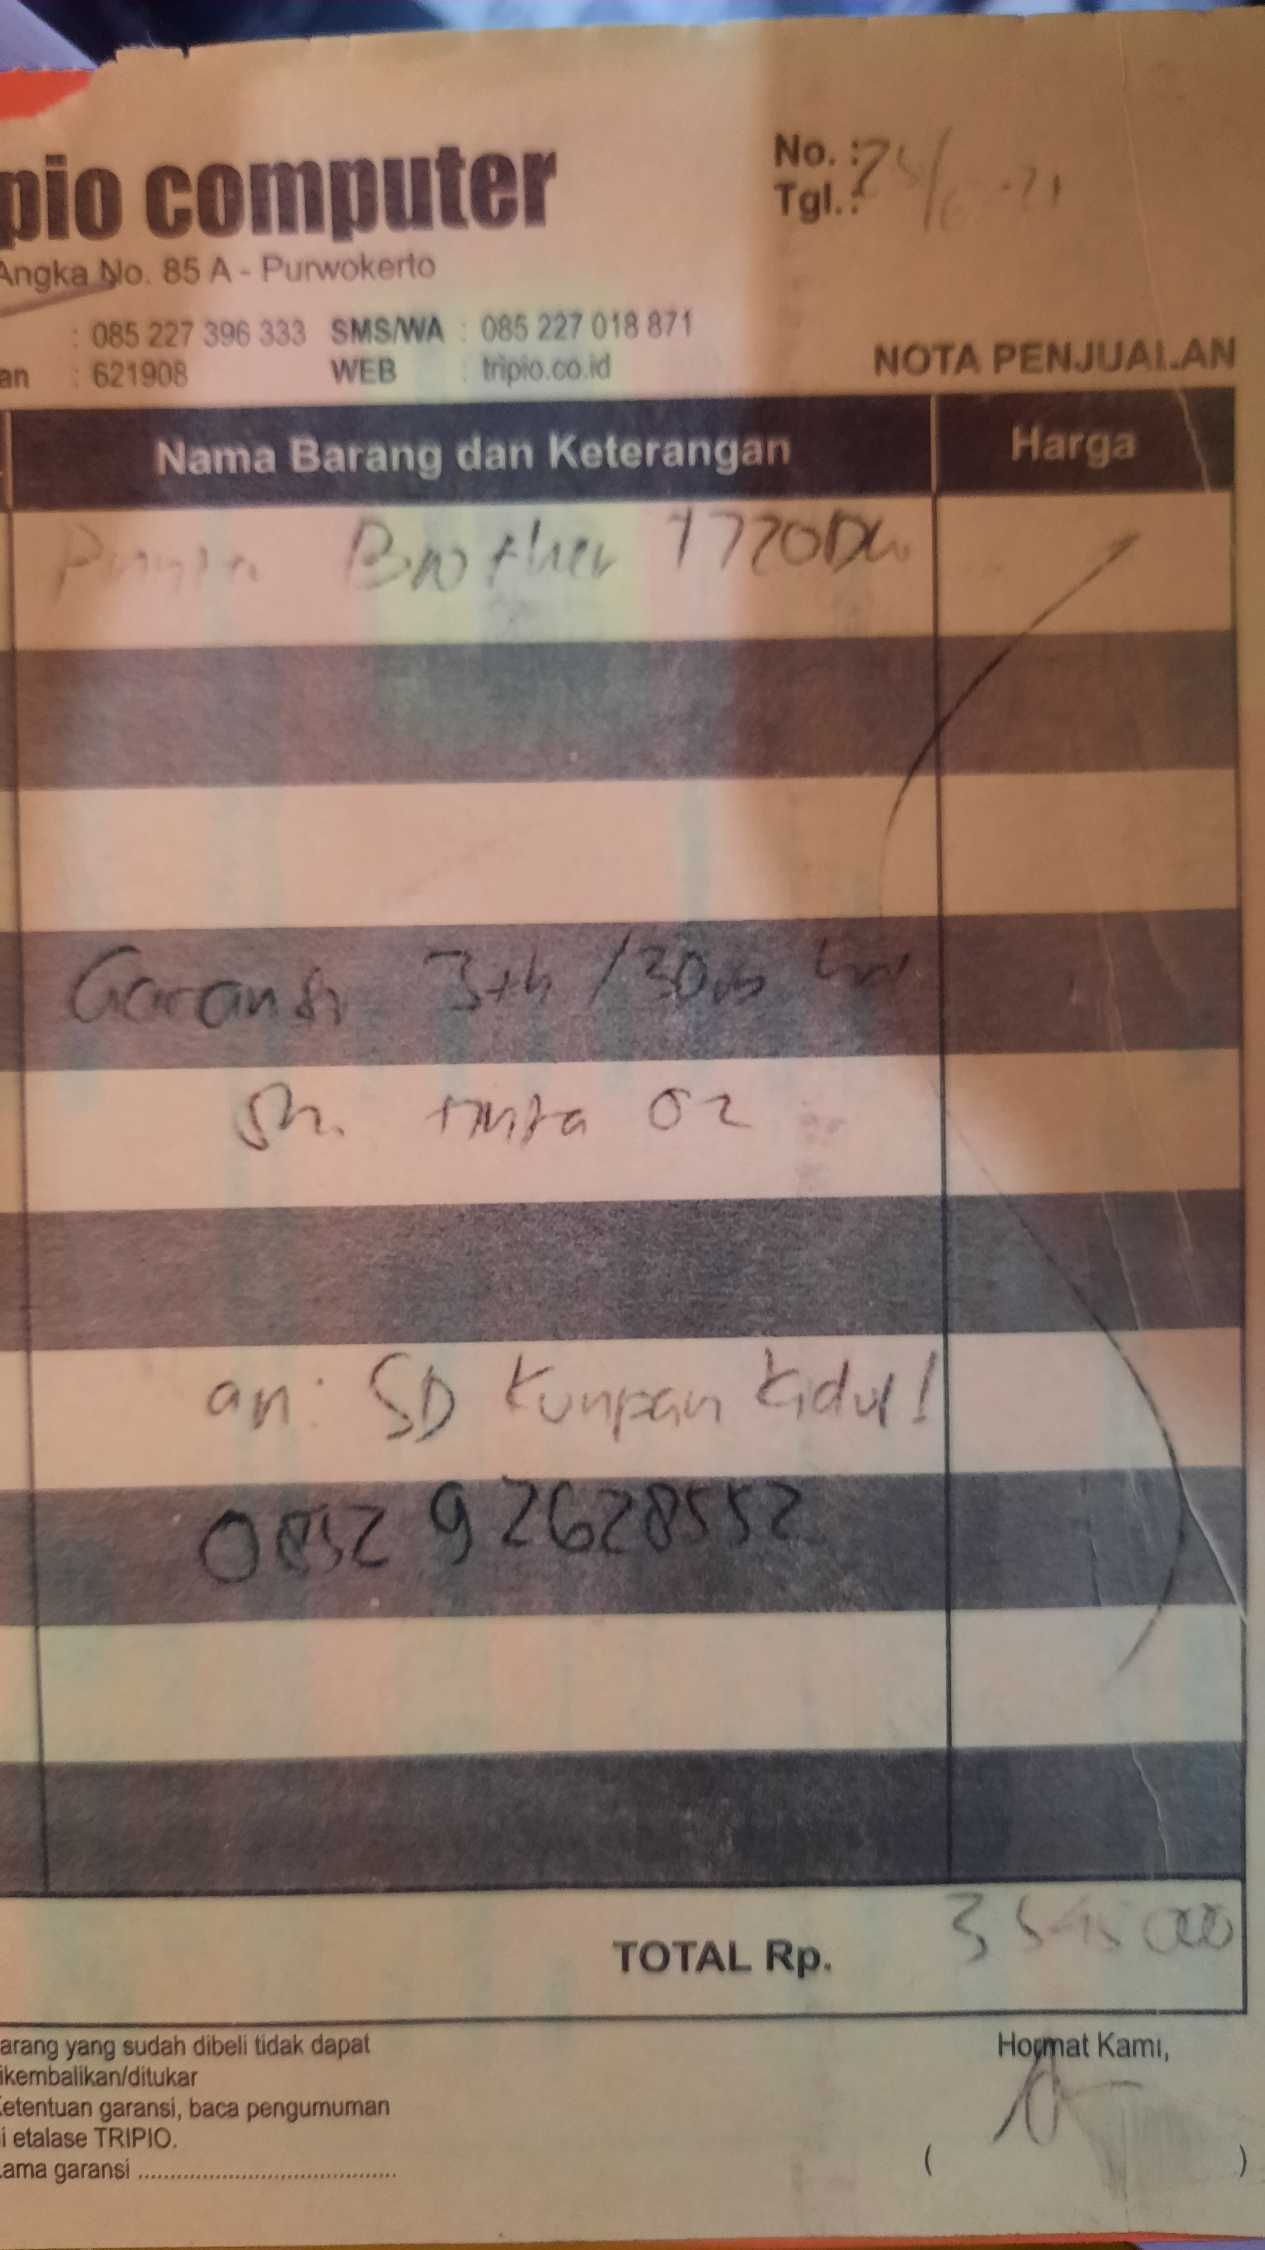 pio computer
No. :
Tgl. :
Angka No. 85 A - Purwokerto
: 085 227 396 333 SMS/WA : 085 227 018 871
an : 621908 WEB : tripio.co.id
NOTA PENJUALAN
Nama Barang dan Keterangan Harga
Brother
Garansi 3th /
tinta 02
an : SD Kidul
0852 92628552
TOTAL Rp.
arang yang sudah dibeli tidak dapat
ikembalikan/ditukar
Ketentuan garansi, baca pengumuman
i etalase TRIPIO.
Lama garansi ........................................
Hormat Kami,
( )